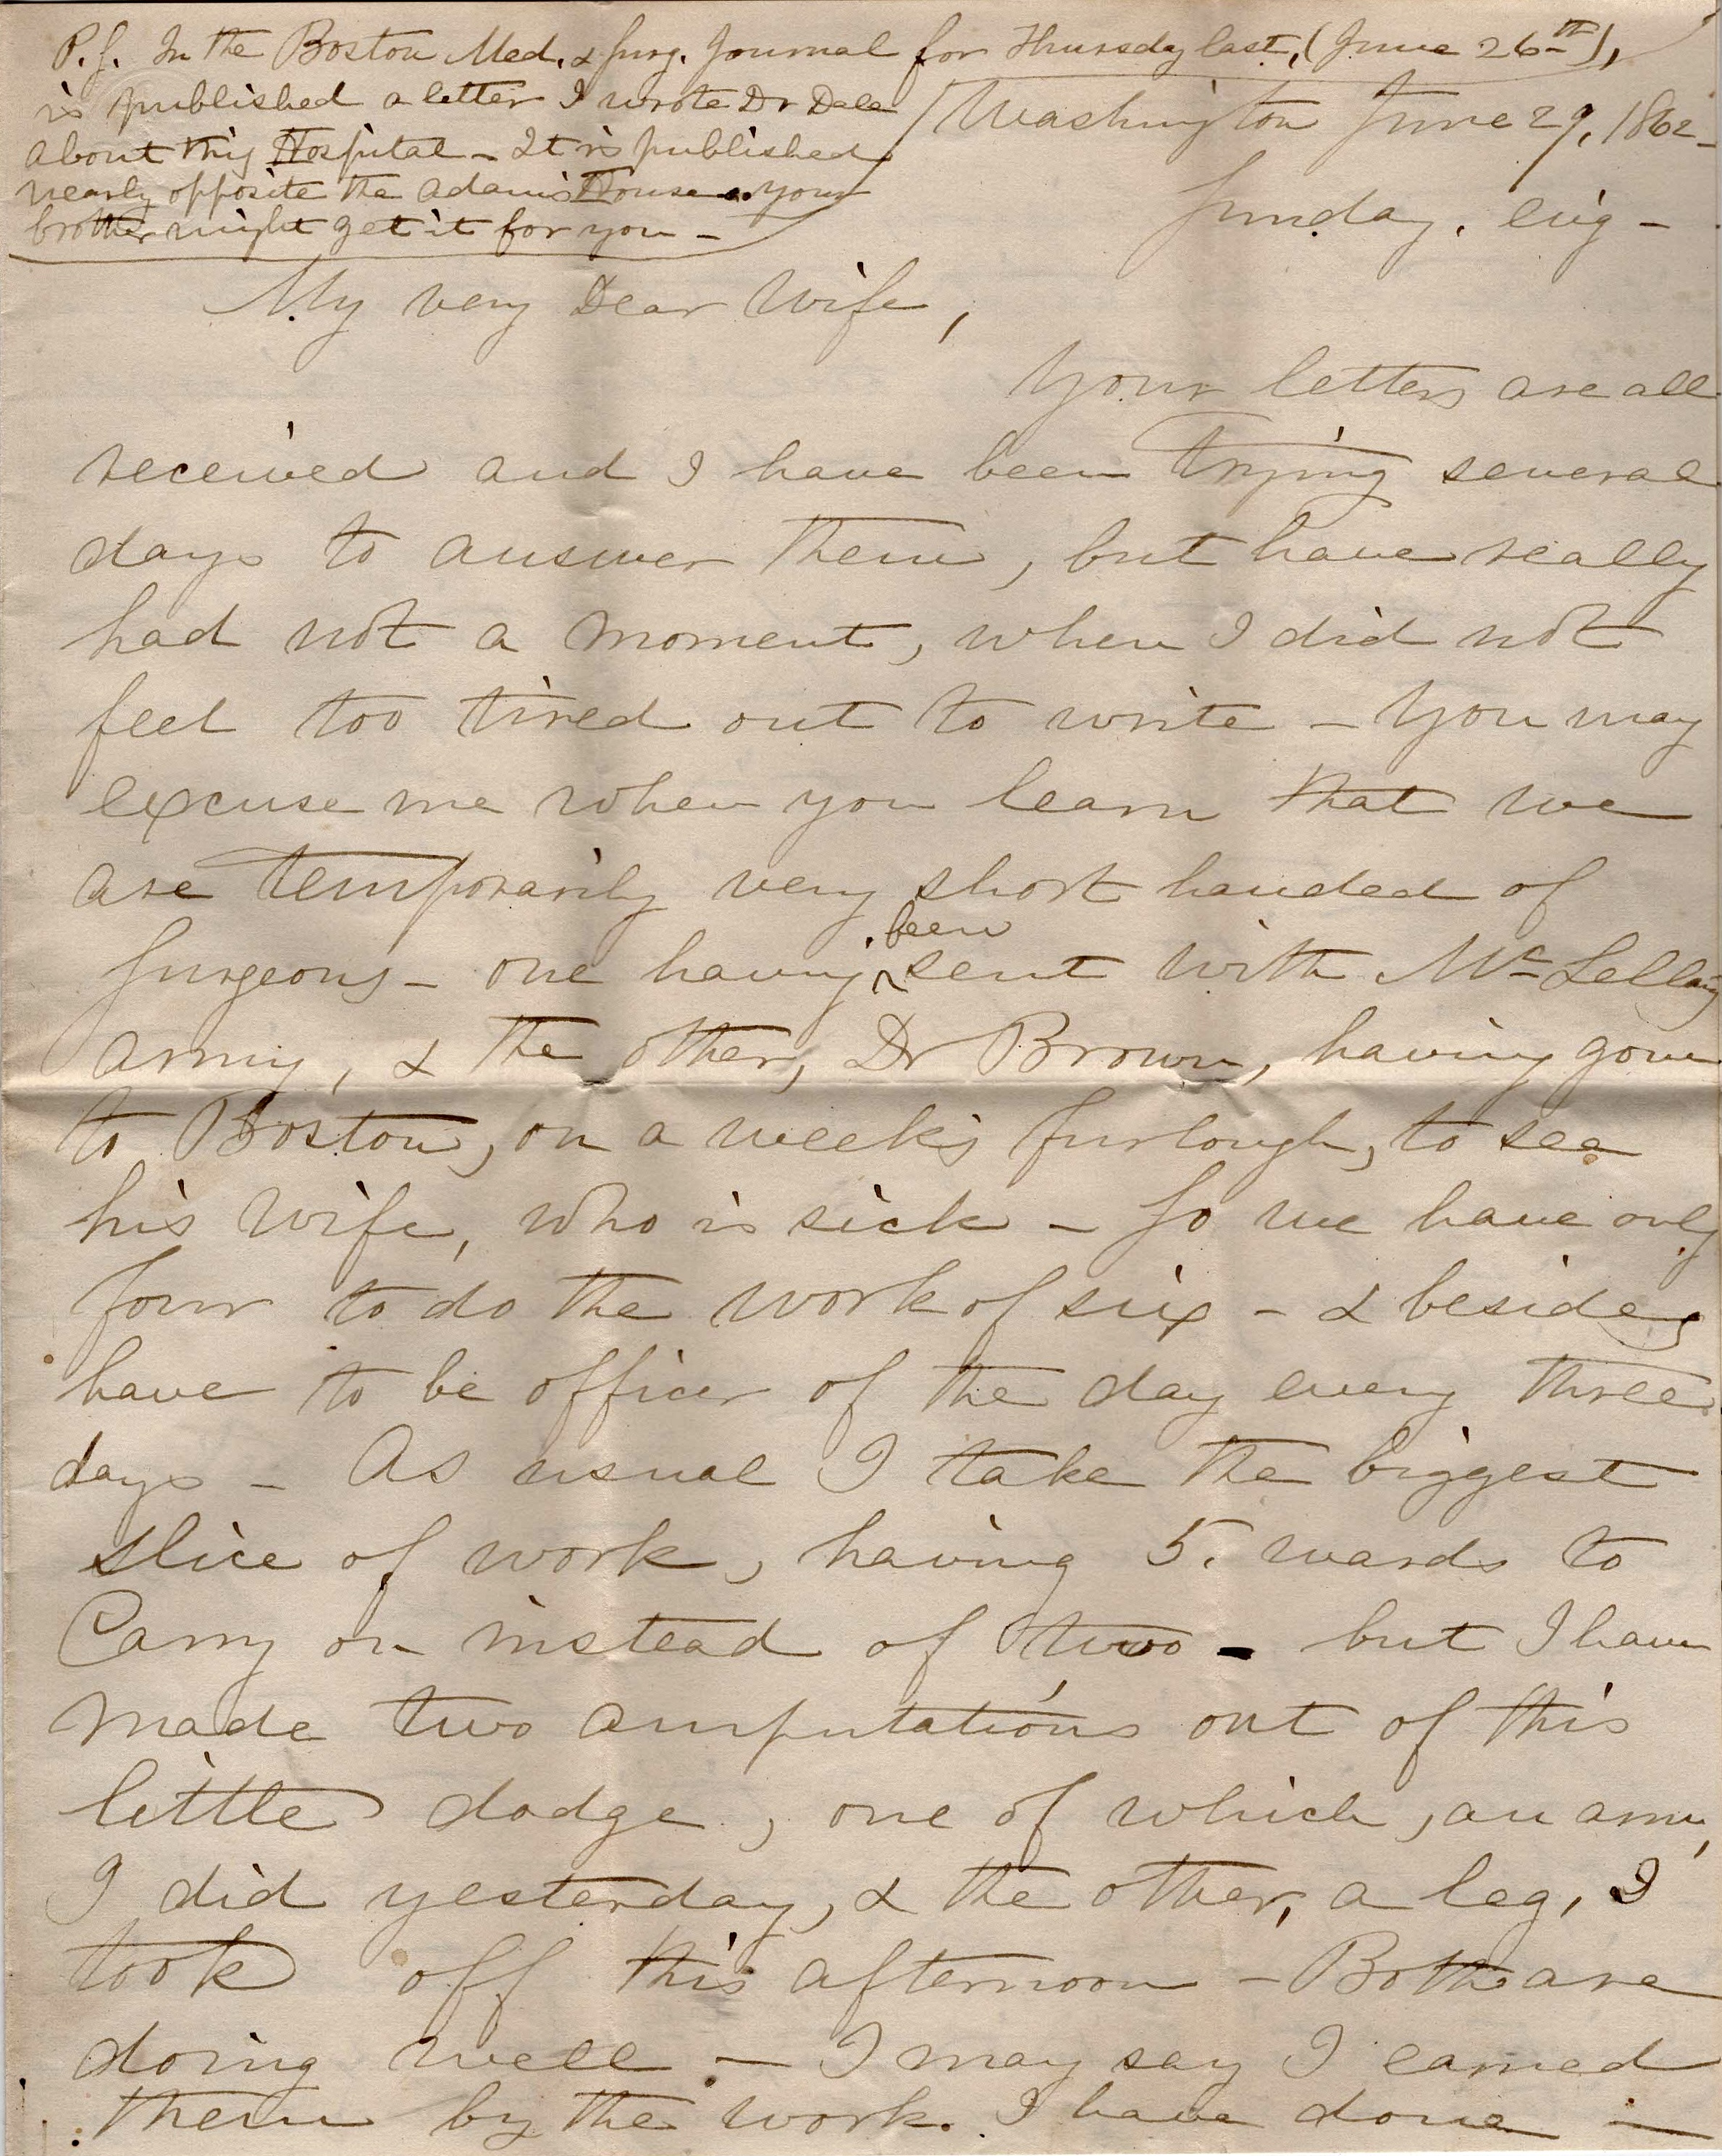 P.S. In the Boston Med. & Surg. Journal for Thursday last, (June 26th),
is published a letter I wrote Dr Dale
about this Hospital - It is published
nearly opposite the Adams House & your
brother might get it for you -
Washington June 29, 1862 -
Sunday, evg -
My very Dear Wife,
Your letters are all
received and I have been trying several
days to answer them, but have really
had not a moment, when I did not
feel too tired out to write - You may
excuse me when you learn that we
are temporarily very short handed of
Surgeons - one having been sent with McLellans
army, & the other, Dr Brown, having gone
to Boston, on a week's furlough, to see
his wife, who is sick - So we have only
four to do the work of six - & besides
have to be officer of the day every three
days - As usual I take the biggest
slice of work, having 5. wards to
Carry on instead of two - but I have
made two amputations out of this
little dodge, one of which, an arm,
I did yesterday, & the other, a leg, I
took off this afternoon - Both are
doing well - I may say I earned
them by the work. I have done -